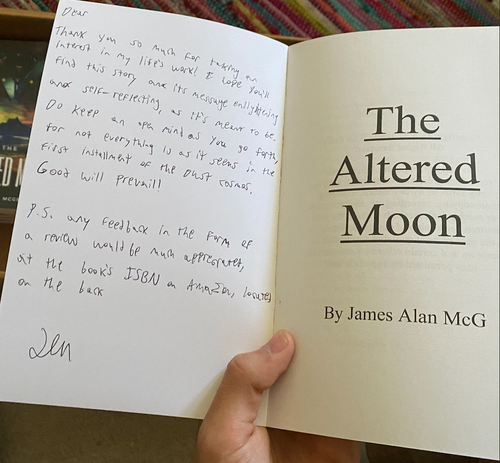 Dear
Thank you so much for taking an
interest in my life's work! I hope you'll
find this story and its message enlightening
and self-reflecting, as it's meant to be.
Do keep an open mind as you go forth,
for not everything is as it seems in the
first installment of the Dust cosmos.
Good will prevail!
P.S. any feedback in the form of
a review would be much appreciated,
at the book's ISBN on Amazon, located
on the back
The
Altered
Moon
By James Alan McG
THE
MCG